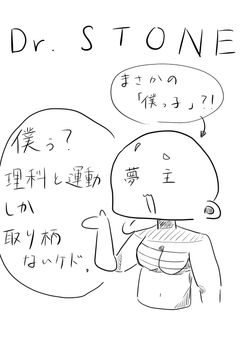 Dr. STONE
まさかの
「僕っ子」?!
僕ぅ?
理科と運動
しか
取り柄
ないケド。
夢主